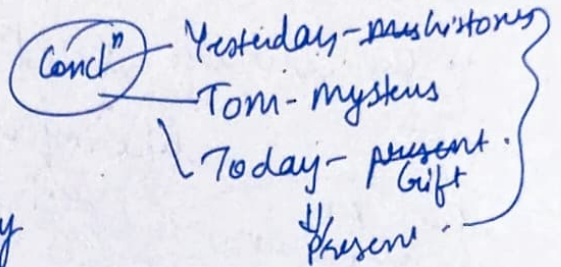 Concl^n
Yesterday - history
Tom - mysterus
Today - present.
Gift
⇓
Present.
y